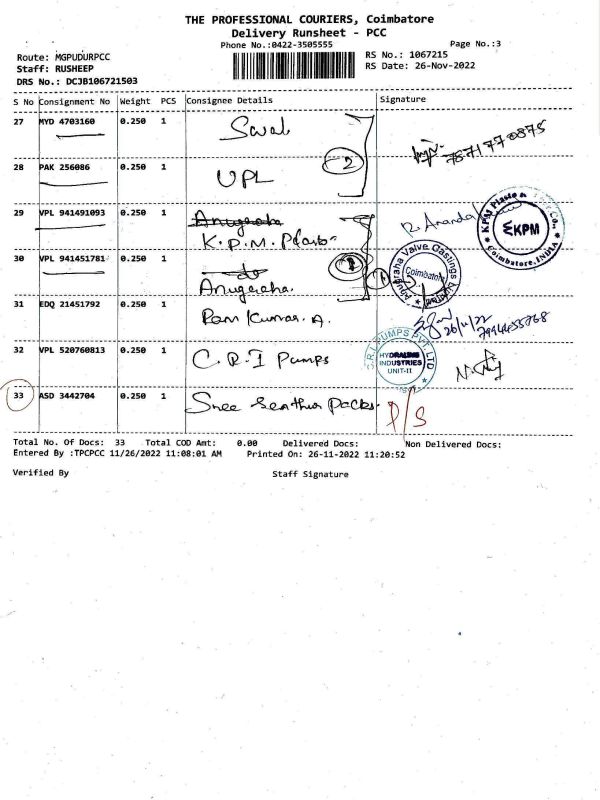 THE PROFESSIONAL COURIERS, Coimbatore
Delivery Runsheet - PCC
Phone No.:0422-3505555 Page No.:3
Route: MGPUDURPCC RS No.: 1067215
Staff: RUSHEEP RS Date: 26-Nov-2022
DRS No.: DCJB106721503
S No Consignment No Weight PCS Consignee Details Signature
27 MYD 4703160 0.250 1
28 PAK 256086 0.250 1 UPL 2
29 VPL 941491093 0.250 1 Anugraha
K.P.M. KPM
30 VPL 941451781 0.250 1 Anugraha Valve Castings
Anugraha. Coimbatore
31 EDQ 21451792 0.250 1 Ram Kumar. A. 26/11/22
32 VPL 520760813 0.250 1 C.R.I Pumps C.R.I. PUMPS PVT. LTD
HYDRAULING
INDUSTRIES
UNIT-II
33 ASD 3442704 0.250 1 Sree Senthur Packs. P/S
Total No. Of Docs: 33 Total COD Amt: 0.00 Delivered Docs: Non Delivered Docs:
Entered By :TPCPCC 11/26/2022 11:08:01 AM Printed On: 26-11-2022 11:20:52
Verified By Staff Signature